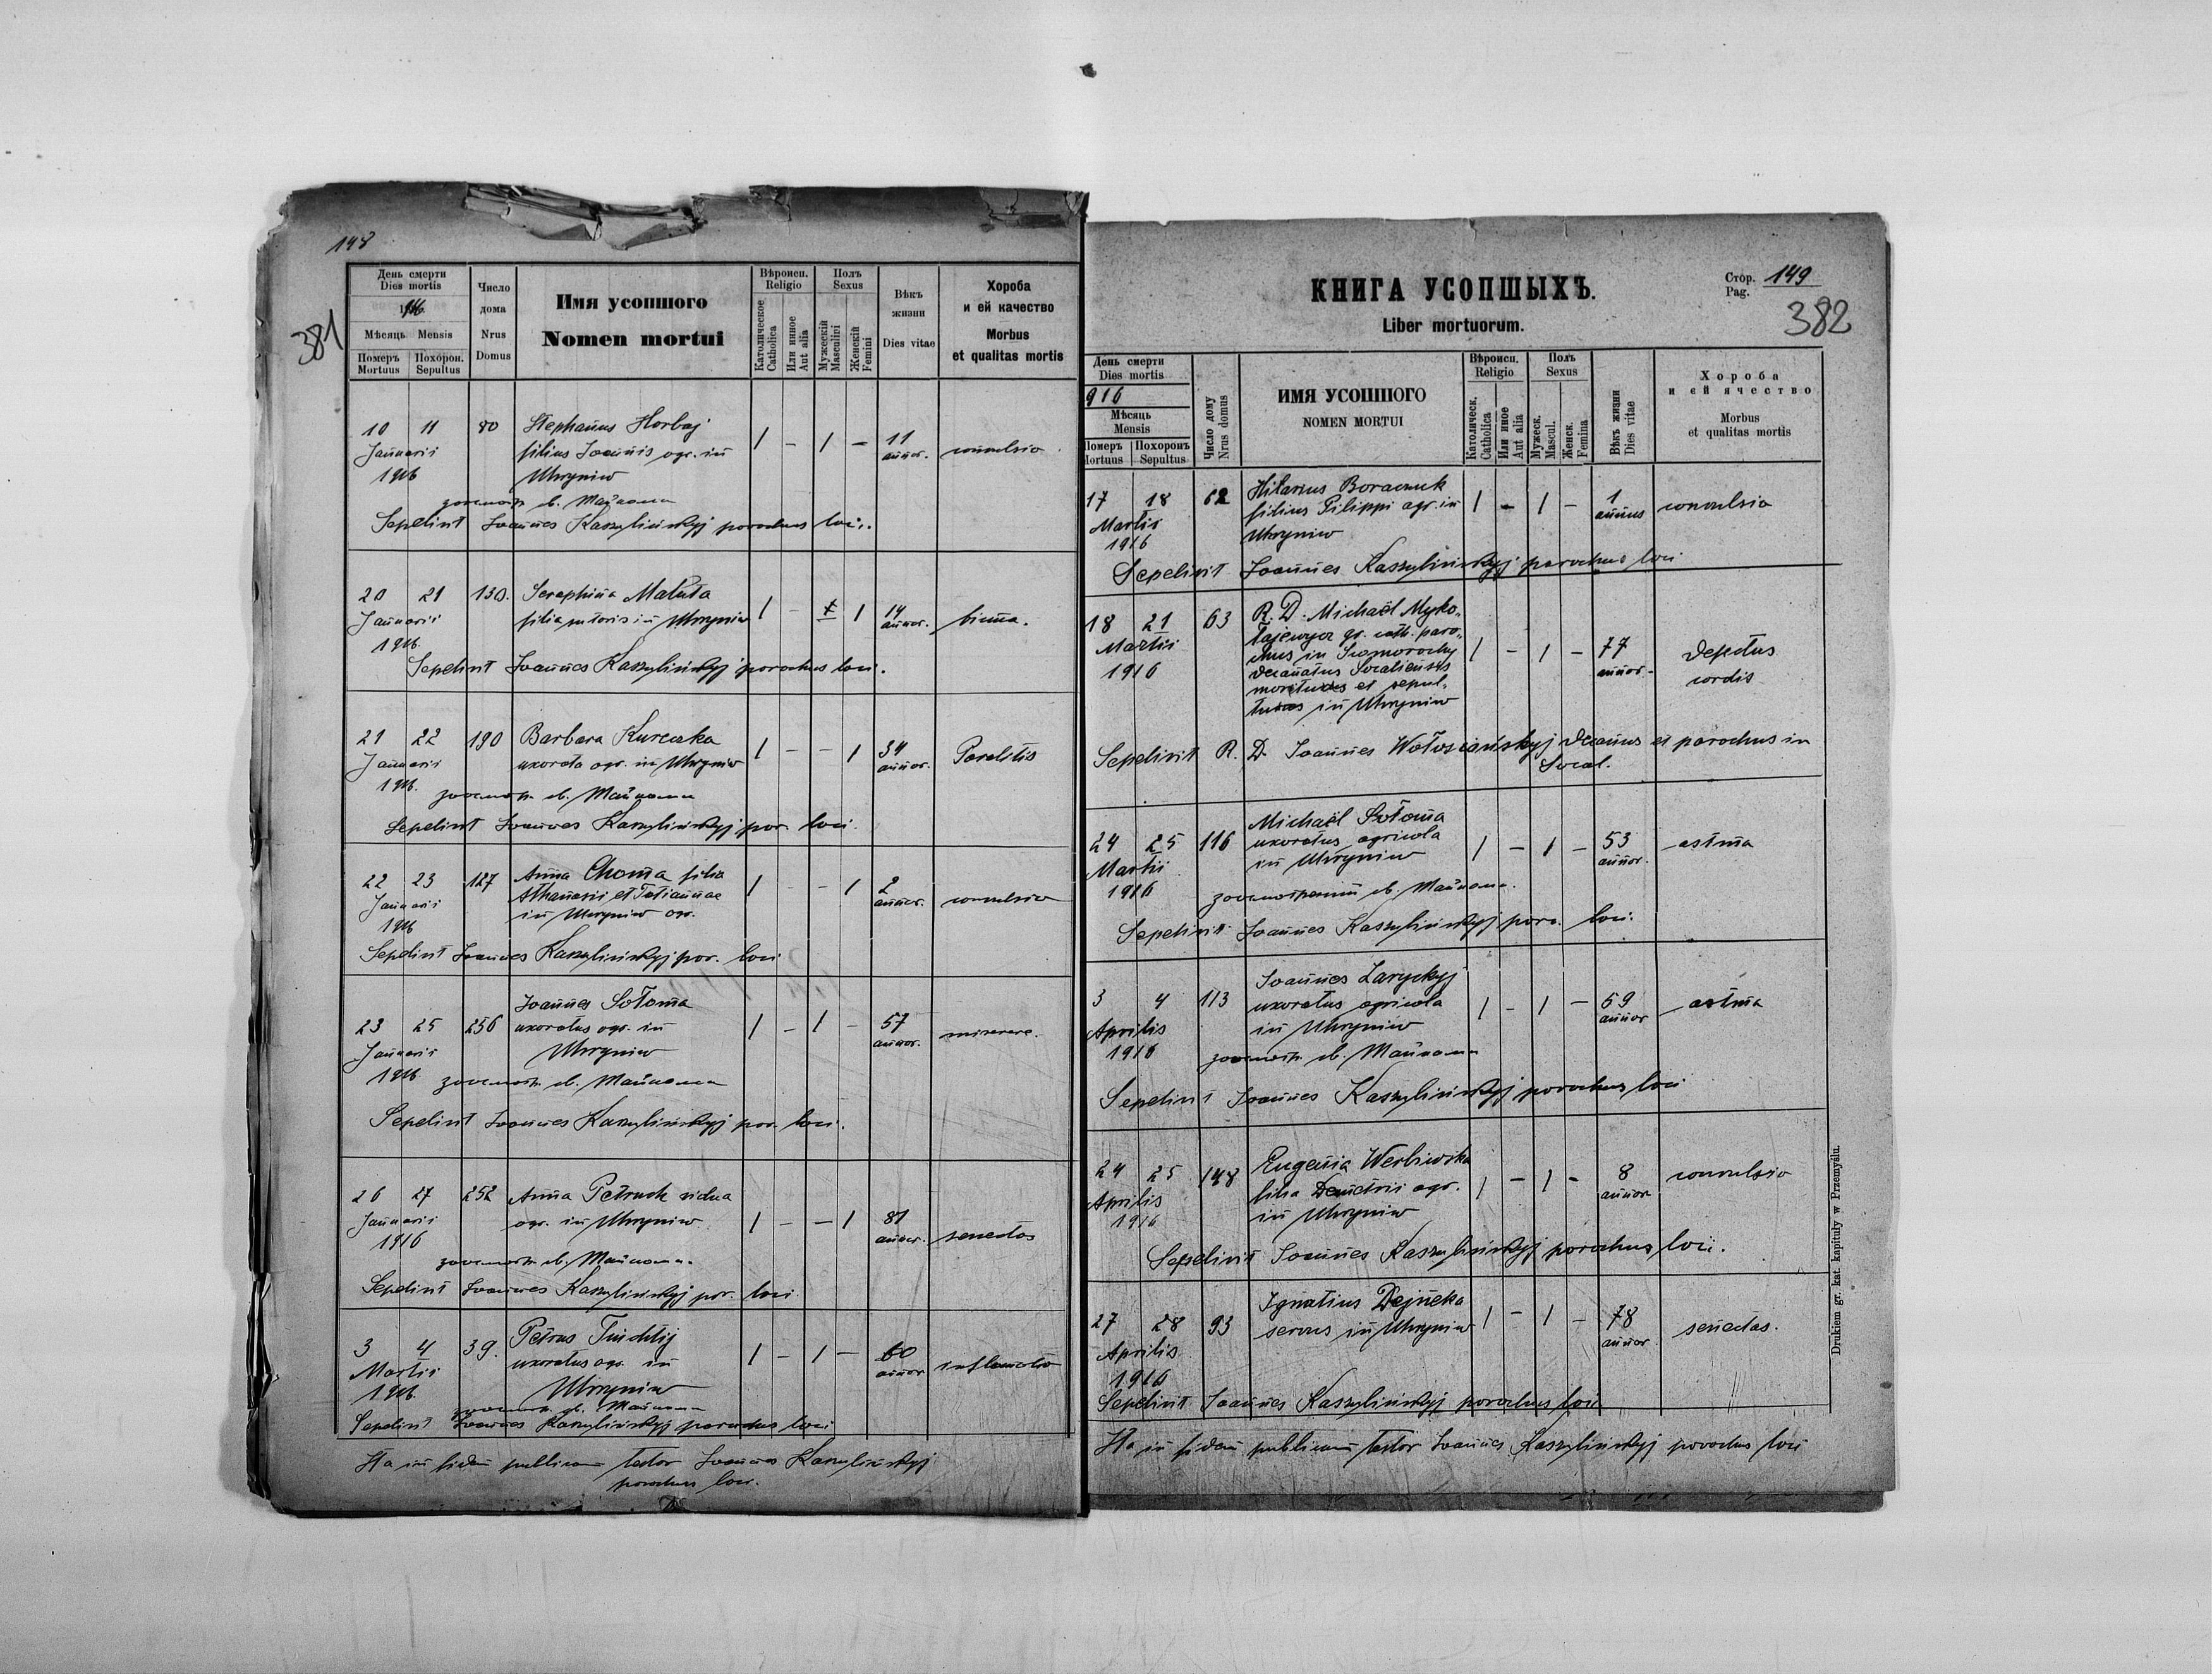 148
381
День смерти
Dies mortis
1916
Мѣсяць Mensis
Померъ Mortuus
Похорон. Sepultus
Число дома
Nrus Domus
Имя усопшого
Nomen mortui
Вѣроисп.
Religio
Католическое
Catholica
Или инное
Aut alia
Полъ
Sexus
Мужескій
Masculini
Женскій
Femini
Вѣкъ жизни
Dies vitae
Хороба
и ей качество
Morbus
et qualitas mortis
10 11 80 Stephanus Horbaj 1 - 1 - 11 convulsio
Januarii filius Joannis agr. in annor.
1916 Uhryniw
Sepelivit Joannes Kaszylińskyj parochus loci.
20 21 130. Seraphina Maluta 1 - 1 14 annor.
Januarii filia sutoris in Uhryniw
1916
Sepelivit Joannes Kaszylińskyj parochus loci.
21 22 190 Barbara 1 - - 1 34 annor. Paralitis
Januarii uxorata agr. in Uhryniw
1916
Sepelivit Joannes Kaszylińskyj par. loci.
22 23 127 Anna Choma filia 1 - - 1 2 annor. convulsio
Januarii Athanasii et Tatiannae
1916 in Uhryniw agr.
Sepelivit Joannes Kaszylińskyj par. loci
23 25 256 Joannes Sołoma 1 - 1 - 57 annor. miserere.
Januarii uxoratus agr. in
1916 Uhryniw
Sepelivit Joannes Kaszylińskyj par. loci.
26 27 252 Anna Petruch vidua 1 - - 1 81 annor. senectas
Januarii agr. in Uhryniw
1916
Sepelivit Joannes Kaszylińskyj par. loci.
3 4 39. Petrus 1 - 1 - 60 annor
Martii uxoratus agr. in
1916. Uhryniw
Sepelivit Joannes Kaszylińskyj parochus loci
Ita in fidem publicam testor Joannes Kaszylińskyj
parochus loci.
КНИГА УСОПШЫХЪ.
Liber mortuorum.
Стор. 149
Pag.
382
День смерти
Dies mortis
916
Мѣсяць
Mensis
Померъ
Mortuus
Похоронъ
Sepultus
Число дому
Nrus domus
ИМЯ УСОПШОГО
NOMEN MORTUI
Вѣроисп.
Religio
Католическ.
Catholica
Или иное
Aut alia
Полъ
Sexus
Мужеск.
Mascul.
Женск.
Femina
Вѣкъ жизни
Dies vitae
Хороба
и ей ячество
Morbus
et qualitas mortis
17 18 62 Hilarius Boraczuk 1 - 1 - 1 annus convulsio
Martii filius Pilippi agr. in
1916 Uhryniw
Sepelivit Joannes Kaszylińskyj parochus loci
18 21 63 R. D. Michaël Myko-
Martii łajewycz gr. cath. paro-
1916 chus in 1 - 1 - 77 annor. defectus cordis
decanatus Socaliensis
mortuus et sepul-
tus in Uhryniw
Sepelivit R. D. Joannes Wołosiańskyj decanus et parochus in
Socal.
24 25 116 Michaël Sołoma 1 - 1 - 53 annor. astma
Martii uxoratus agricola
1916 in Uhryniw
Sepelivit Joannes Kaszylińskyj paro. loci.
3 4 113 Joannes Laryckyj 1 - 1 - 59 annor astma
Aprilis uxoratus agricola
1916 in Uhryniw
Sepelivit Joannes Kaszylińskyj parochus loci
24 25 148 Eugenia Werbiwska 1 - 1 - 8 annor convulsio
Aprilis filia Demetrii agr.
1916 in Uhryniw
Sepelivit Joannes Kaszylińskyj parochus loci.
27 28 93 Ignatius Dejneka 1 - 1 - 78 annor. senectas.
Aprilis servus in Uhryniw
1916
Sepelivit Joannes Kaszylińskyj parochus loci
Ita in fidem publicam testor Joannes Kaszylińskyj parochus loci
Drukiem gr. kat. kapituły w Przemyślu.